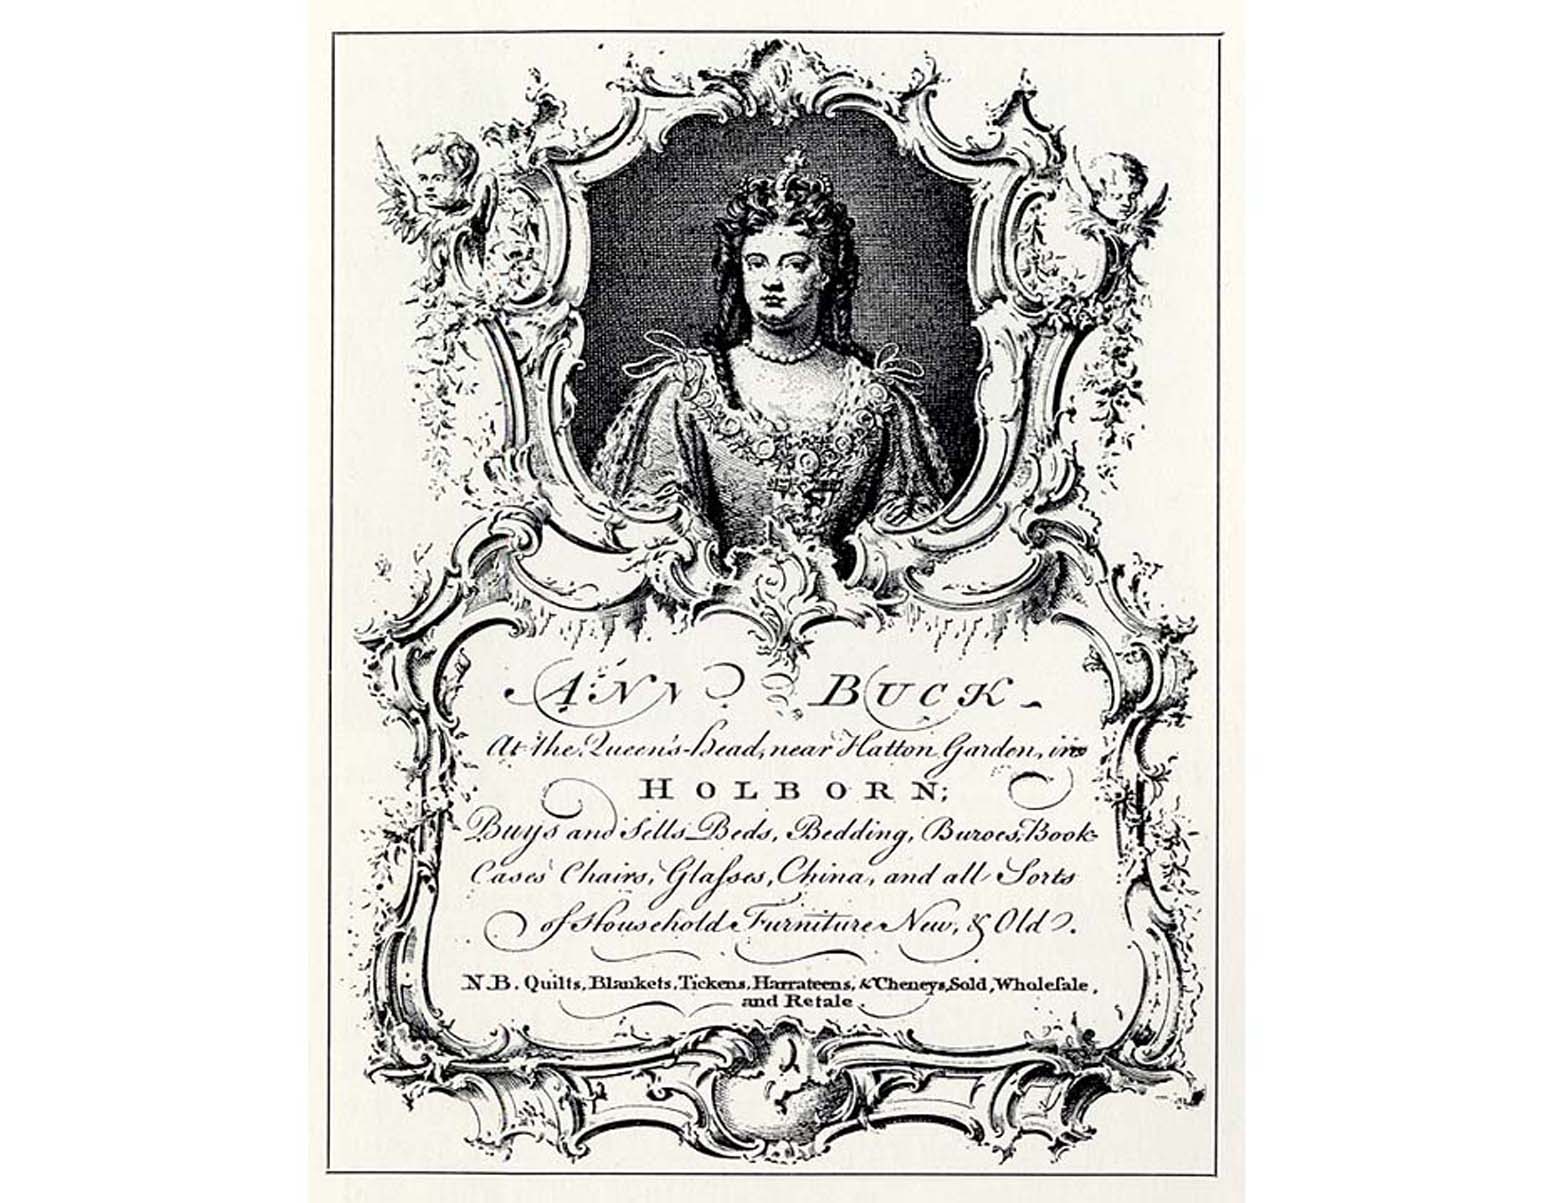 ANN BUCK
At the Queen's-head, near Hatton Garden, in
HOLBORN;
Buys and Sells Beds, Bedding, Buroes, Book-
Cases Chairs, Glaſses, China, and all Sorts
of Household Furniture New, & Old.
N.B. Quilts, Blankets, Tickens, Harrateens, & Cheneys, Sold, Wholeſale,
and Retale.